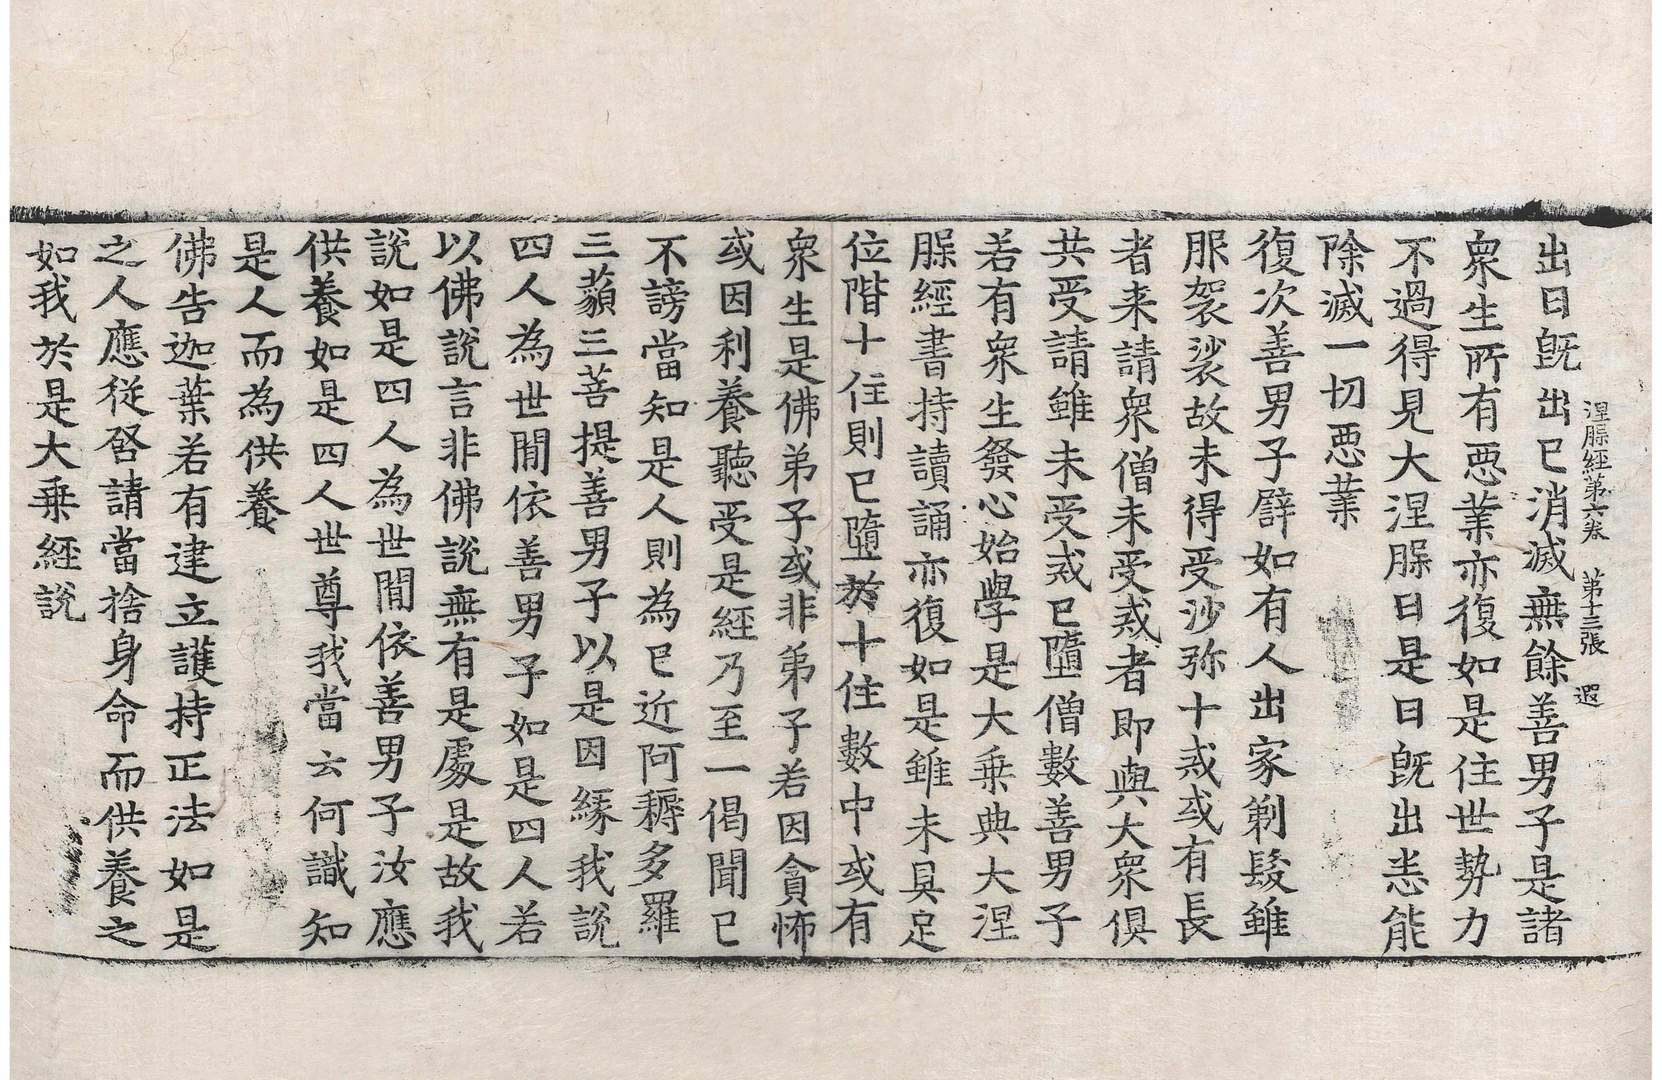 涅脲經第六卷 第十三張 遐
出日旣出已消滅無餘善男子是諸
衆生所有惡業亦復如是住世勢力
不過得見大涅脲日是日旣出悉能
除滅一切惡業
復次善男子譬如有人出家剃髮雖
服袈裟故未得受沙弥十戒或有長
者来請衆僧未受戒者即與大衆俱
共受請雖未受戒已墮僧數善男子
若有衆生發心始學是大乗典大涅
脲經書持讀誦亦復如是雖未具足
位階十住則已墮於十住數中或有
衆生是佛弟子或非弟子若因貪怖
或因利養聽受是經乃至一偈聞已
不謗當知是人則為已近阿耨多羅
三藐三菩提善男子以是因緣我說
四人為世間依善男子如是四人若
以佛說言非佛說無有是處是故我
說如是四人為世間依善男子汝應
供養如是四人世尊我當云何識知
是人而為供養
佛告迦葉若有建立護持正法如是
之人應從啓請當捨身命而供養之
如我於是大乗經說